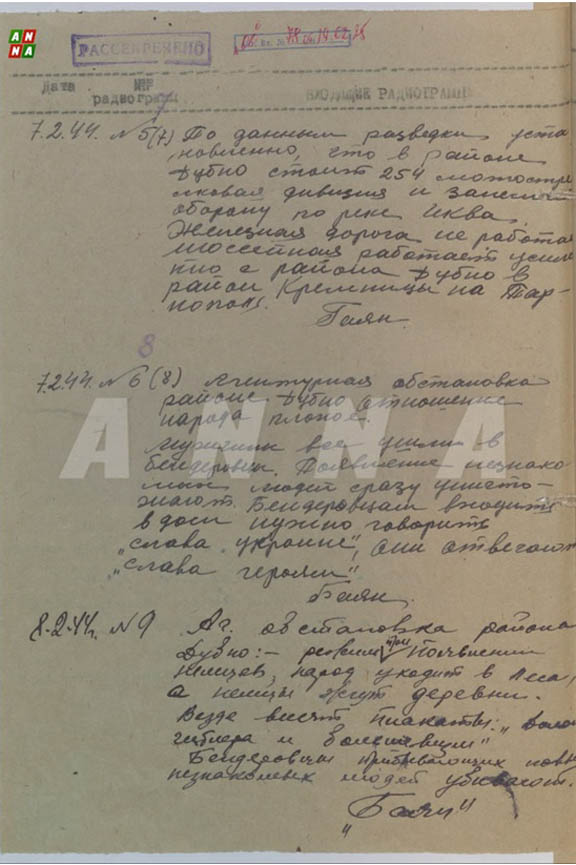 AN
NA
РАССЕКРЕЧЕНО
Вх. №
Дата №№ ВХОДЯЩИЕ РАДИОГРАММ
радиограм
7.2.44. №5(7) По данным разведки уста
новленно, что в районе
Дубно стоит 254 мотостре
лковая дивизия и занем
оборону по реке Иква.
Железная дорога не работа
шоссейная работает усил
нно с района Дубно в
район Кремницы на Тар-
нополь.
Баян.
8
7.2.44. №6(8) Агентурная обстановка
районе Дубно отношение
народа плохое.
мужчины все ушли в
бендеровцы. Появление незнако
мых людей сразу уничто-
жают. Бендеровцам входить
в дом нужно говорить
„слава украине", они отвечают
„слава героям"
Баян.
8.2.44. №9 Аг. обстановка района
Дубно:- режим при появлении
немцев, народ уходит в леса,
а немцы жгут деревни.
Везде висят плакаты: „
гитлера и большевизм"
Бендеровцы прибывающих новы
незнакомых людей убивают.
„Баян"
ANNA